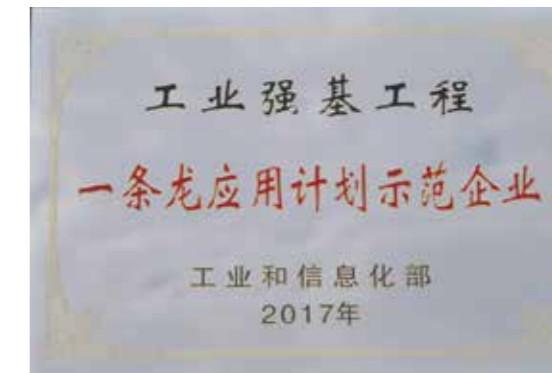 工业强基工程
一条龙应用计划示范企业
工业和信息化部
2017年